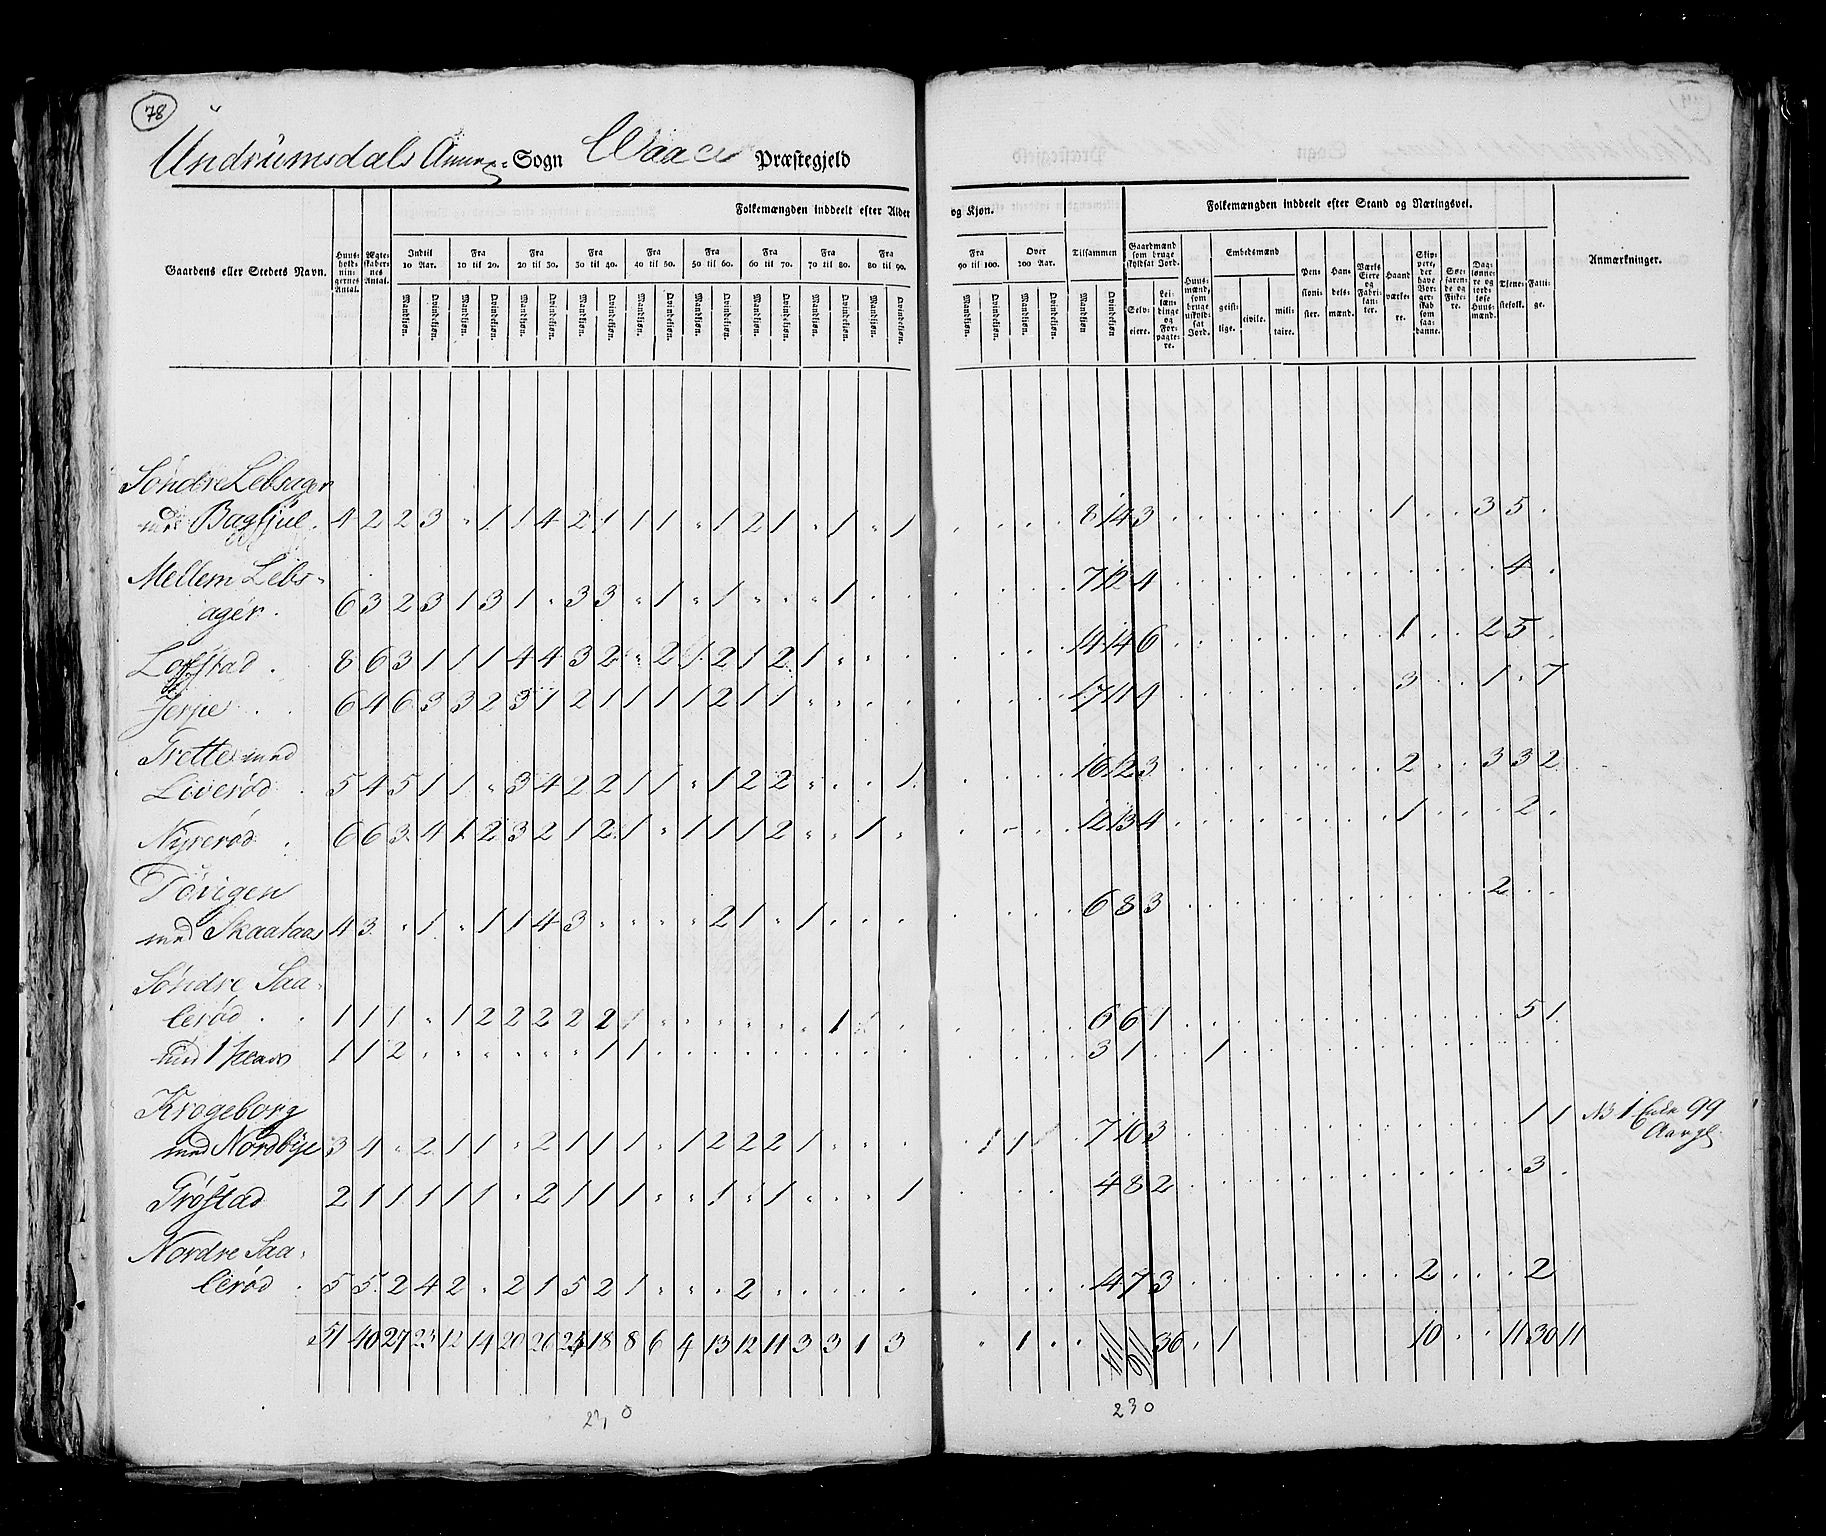 78
Undrumsdals Annex- Sogn Waale Præstegjeld
Folkemængden inddeelt efter Alder og Kjøn.
Folkemængden inddeelt efter Stand og Næringsvei.
Gaardens eller Stedets Navn.
Huus-holdningernes Antal.
Ægteskabernes Antal.
Indtil 10 Aar.
Fra 10 til 20.
Fra 20 til 30.
Fra 30 til 40.
Fra 40 til 50.
Fra 50 til 60.
Fra 60 til 70.
Fra 70 til 80.
Fra 80 til 90.
Fra 90 til 100.
Over 100 Aar.
Tilsammen
Mandkjøn. Qvindekjøn.
Gaardmænd som bruge skyldsat Jord.
Selveiere.
Leilændinge og Forpagtere.
Huusmænd, som bruge uskyldsat Jord.
Embedsmænd
geistlige. civile. militaire.
Pensionister.
Handelsmænd.
Værks Eiere og Fabrikanter.
Haandværkere.
Skippere, der have Borgerskab som saadanne.
Søefarende og Fiskere.
Daglønnere og jordløse Huusmænd.
Tjenestefolk.
Fattige.
Anmærkninger.
Søndre Lebsager
med Bagsjuel. 4 2 2 3 " 1 1 4 2 1 1 1 " 1 2 1 " 1 " 1 . . . . 8 14 3 . . . . . . . . 1 . . 3 5 .
Mellem Lebs-
ager. 6 3 2 3 1 3 1 " 3 3 " 1 " 1 " " " 1 . . . . . . 7 12 4 . . . . . . . . . . . . 4 .
Lofstad. 8 6 3 1 1 1 4 4 3 2 " 2 1 2 1 2 1 " . . . . . . 14 14 6 . . . . . . . . 1 . . 2 5 .
Jerpe . . 6 4 6 3 3 2 3 1 2 1 1 1 1 2 1 1 " . . . . . . . 17 11 4 . . . . . . . . 3 . . 1 . 7
Trette med
Liverød . 5 4 5 1 1 " 3 4 2 2 1 1 " 1 2 2 " . . 1 . . . . 16 12 3 . . . . . . . . 2 . . 3 3 2
Nyrerød . 6 6 3 4 1 2 3 2 1 2 1 " 1 1 1 2 " " 1 " . - . . 12 13 4 . . . . . . . . 1 . . . 2 .
Tøvigen
med Skaataas 4 3 " 1 " 1 1 4 3 " " " " 2 1 " 1 . . . . . . . 6 8 3 . . . . . . . . . . . 2 . .
Søndre Saa-
lerød . . 1 1 1 " 1 2 2 2 2 2 " " " " " " " 1 . . . . . . 6 6 1 . . . . . . . . . . . . 5 1
med 1 plads 1 1 2 . . " " " " 1 1 . . . . . . . . . . . . . 3 1 . . 1 . . . . . . . . . . . .
Krogeborg
med Nordbye 3 4 " 2 1 1 " 2 1 1 1 " 1 2 2 2 1 " " " 1 1 . . 7 10 3 . . . . . . . . . . . . 1 1 NB 1 Enke 99
Aar gl.
Trøstad 2 1 1 1 1 1 " 2 1 1 1 " " 1 " 1 " " " 1 . . . . 4 8 2 . . . . . . . . . . . . 3 .
Nordre Saa-
lerød . 5 5 2 4 2 " 2 1 5 2 1 " " . 2 . . . . . . . . . 14 7 3 . . . . . . . . 2 . . . 2
51 40 27 23 12 14 20 26 24 18 8 6 4 13 12 11 3 3 1 3 " 1 . . 36 . 1 10 . . 11 30 11
230
230